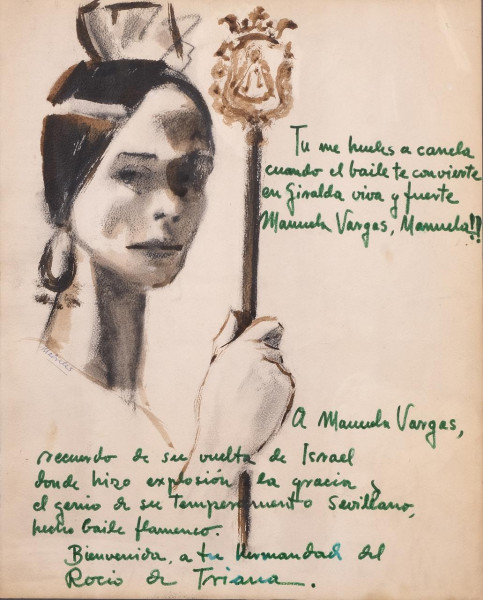 Tu me hueles a canela
cuando el baile te convierte
en Giralda viva y fuerte
Manuela Vargas, Manuela!!
A Manuela Vargas,
recuerdo de su vuelta de Israel
donde hizo explosión la gracia y
el genio de su temperamento sevillano,
hecho baile flamenco.
Bienvenida, a tu hermandad del
Rocio de Triana.